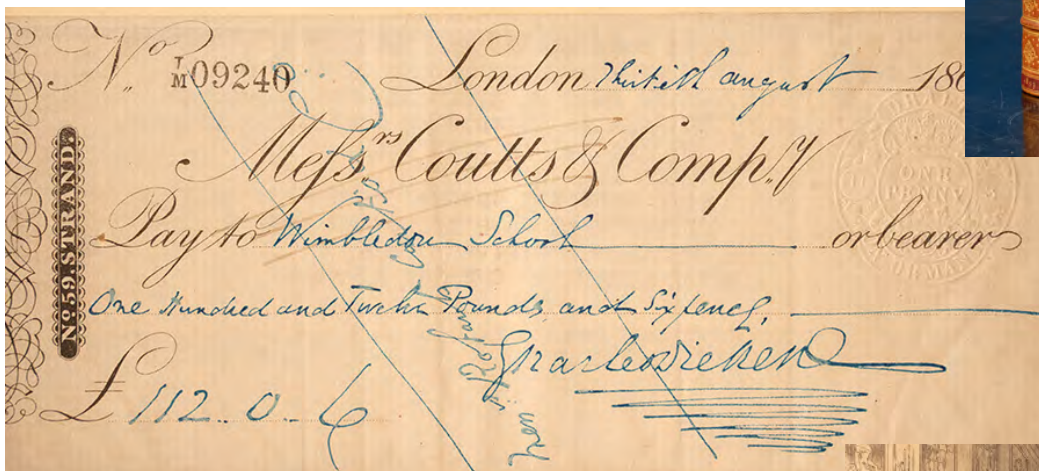 No. T/M 09240 London Thirtieth august 186
Messrs. Coutts & Compy
Pay to Wimbledon School or bearer
One Hundred and Twelve Pounds, and Sixpence,
Charles Dickens
£ 112.0.6
No. 59. STRAND.
ONE
PENNY